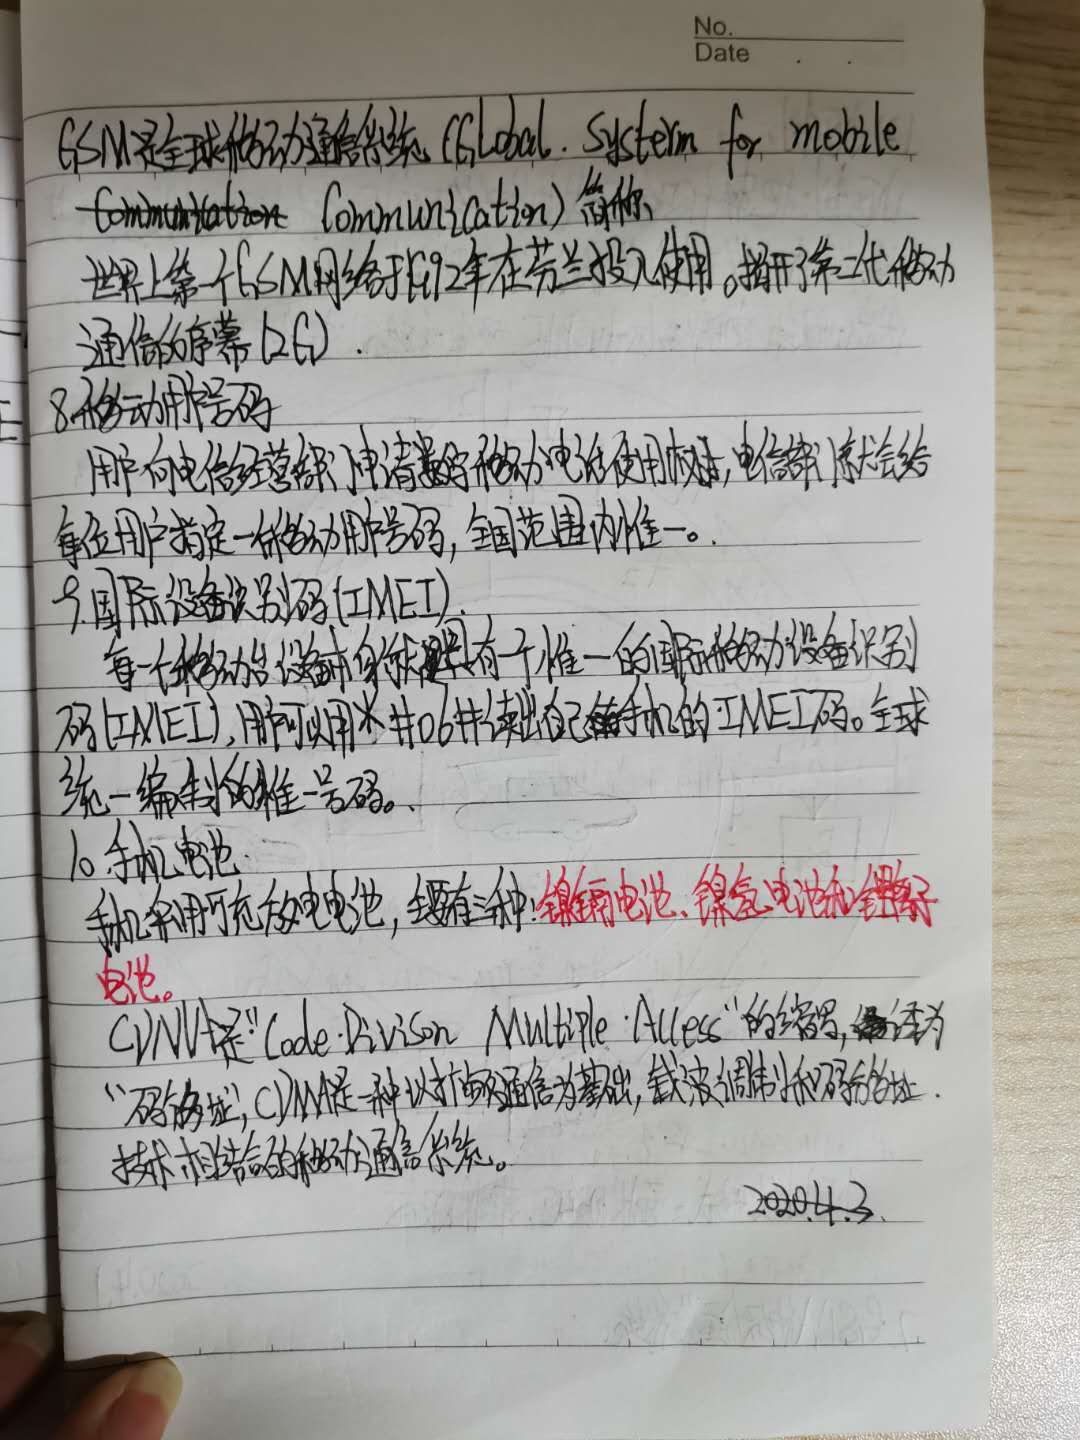 No.
Date
GSM是全球移动通信系统(GLobal. Systerm for mobile
Communication Communication)简称
世界上第一个GSM网络于1992年在芬兰投入使用。揭开了第二代移动
通信的序幕(2G).
8.移动用户号码
用户向电信经营部门申请数字移动电话使用权时,电信部门就会给
每位用户指定一个移动用户号码,全国范围内惟一。
9.国际设备识别码(IMEI).
每一个移动台设备本身就具有一个惟一的国际移动设备识别
码(IMEI),用户可以用*#06#读出自己手机的IMEI码。全球
统一编制的惟一号码。
10.手机电池
手机采用可充放电电池,主要有三种:镍镉电池、镍氢电池和锂离子
电池。
CDMA是"Code Divison Multiple Access"的缩写,译为
"码分多址",CDMA是一种以扩频通信为基础,载波调制和码分多址
技术相结合的移动通信系统。
2020.4.3.